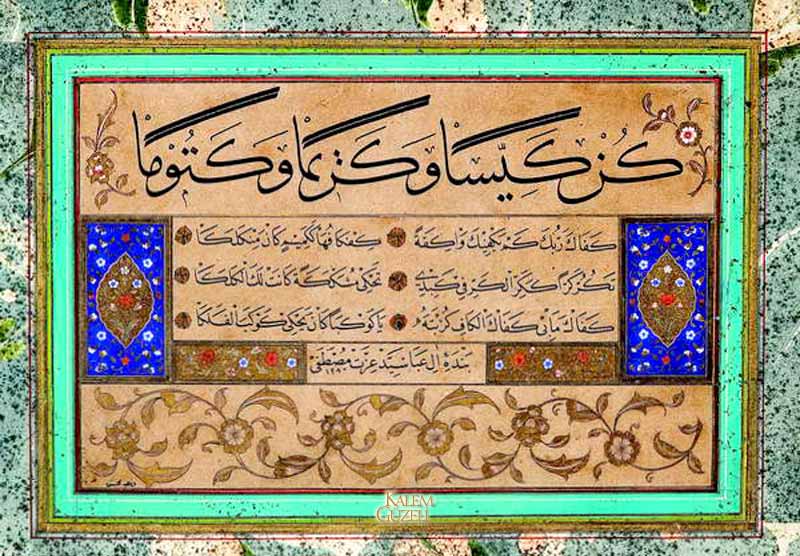 كُنْ كَيِّسًا وَكَرِيمًا وَكَتُومًا
كفاك ربك كم يكفيك واكفة كفكافها ككمين كان من كلكا
تكر كرا ككر الكر في كبد تحكي مشكشكة كانت لك الكلكا
كفاك مابي كفاك الكاف كربته يا كوكبا كان يحكي كوكب الفلكا
سيد عزت مصطفى
KALEM
GÜZELİ